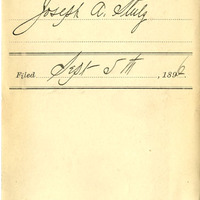 Joseph A. Stulz
Filed Sept 5th, 1896